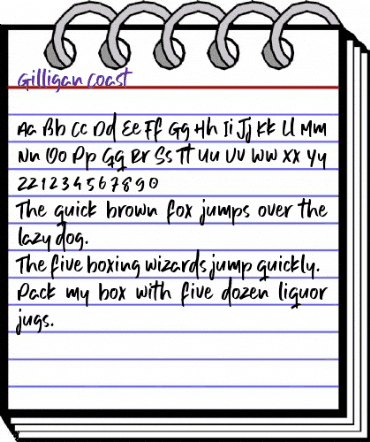 Gilligan Coast
Aa Bb Cc Dd Ee Ff Gg Hh Ii Jj Kk Ll Mm
Nn Oo Pp Qq Rr Ss Tt Uu Vv Ww Xx Yy
Zz 1 2 3 4 5 6 7 8 9 0
The quick brown fox jumps over the
lazy dog.
The five boxing wizards jump quickly.
Pack my box with five dozen liquor
jugs.